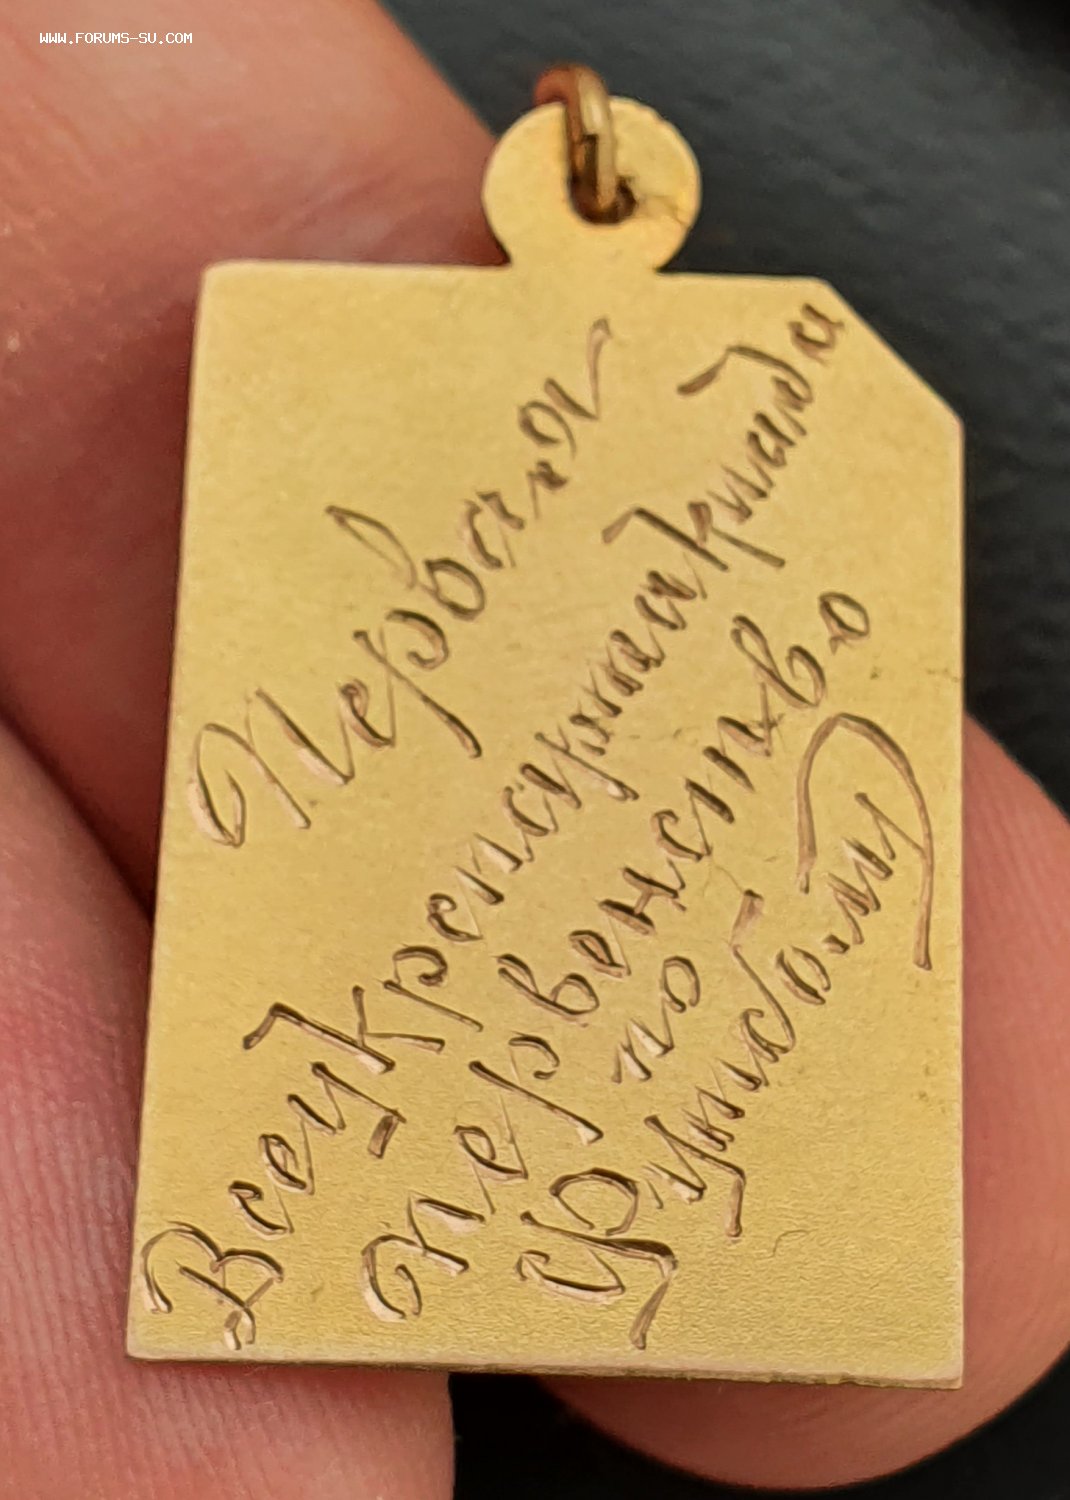 WWW.FORUMS-SU.COM
Первая
Всеукрспартакиада
первенство
по
Футболу